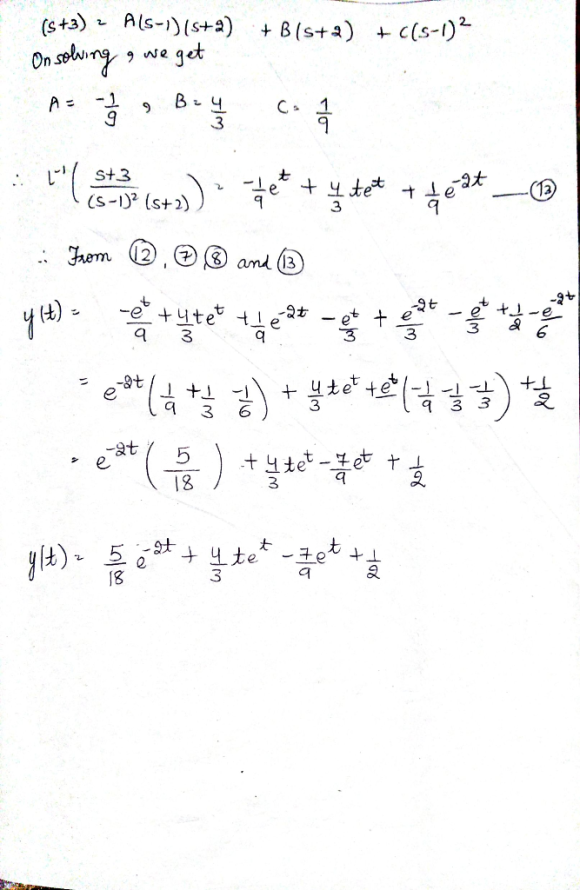 (s+3) = A(s-1)(s+2) + B(s+2) + C(s-1)²
On solving, we get
A = -1/9, B = 4/3 C = 1/9
∴ L⁻¹( s+3 / (s-1)² (s+2) ) = -1/9 eᵗ + 4/3 teᵗ + 1/9 e⁻²ᵗ —(13)
∴ From (12), (7) (8) and (13)
y(t) = -eᵗ/9 + 4/3 teᵗ + 1/9 e⁻²ᵗ - eᵗ/3 + e⁻²ᵗ/3 - eᵗ/3 + 1/2 - e⁻²ᵗ/6
= e⁻²ᵗ (1/9 + 1/3 - 1/6) + 4/3 teᵗ + eᵗ (-1/9 - 1/3 - 1/3) + 1/2
= e⁻²ᵗ (5/18) + 4/3 teᵗ - 7/9 eᵗ + 1/2
y(t) = 5/18 e⁻²ᵗ + 4/3 teᵗ - 7/9 eᵗ + 1/2